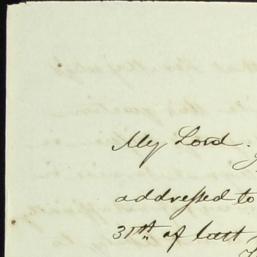 My Lord.
addressed to
31st of last